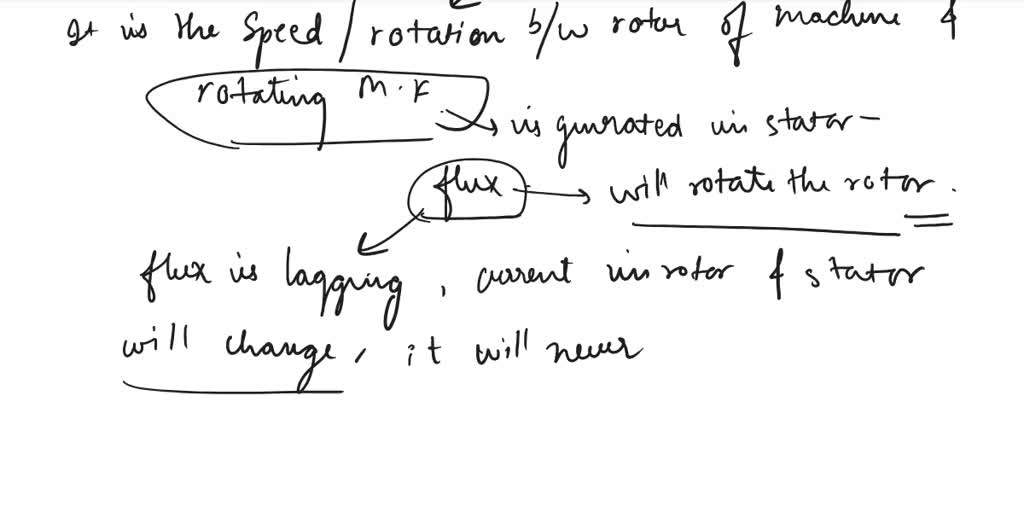 It is the Speed / rotation b/w rotor of machine &
rotating M.F
is generated in stator -
flux
will rotate the rotor.
flux is lagging, current in rotor & stator
will change, it will never